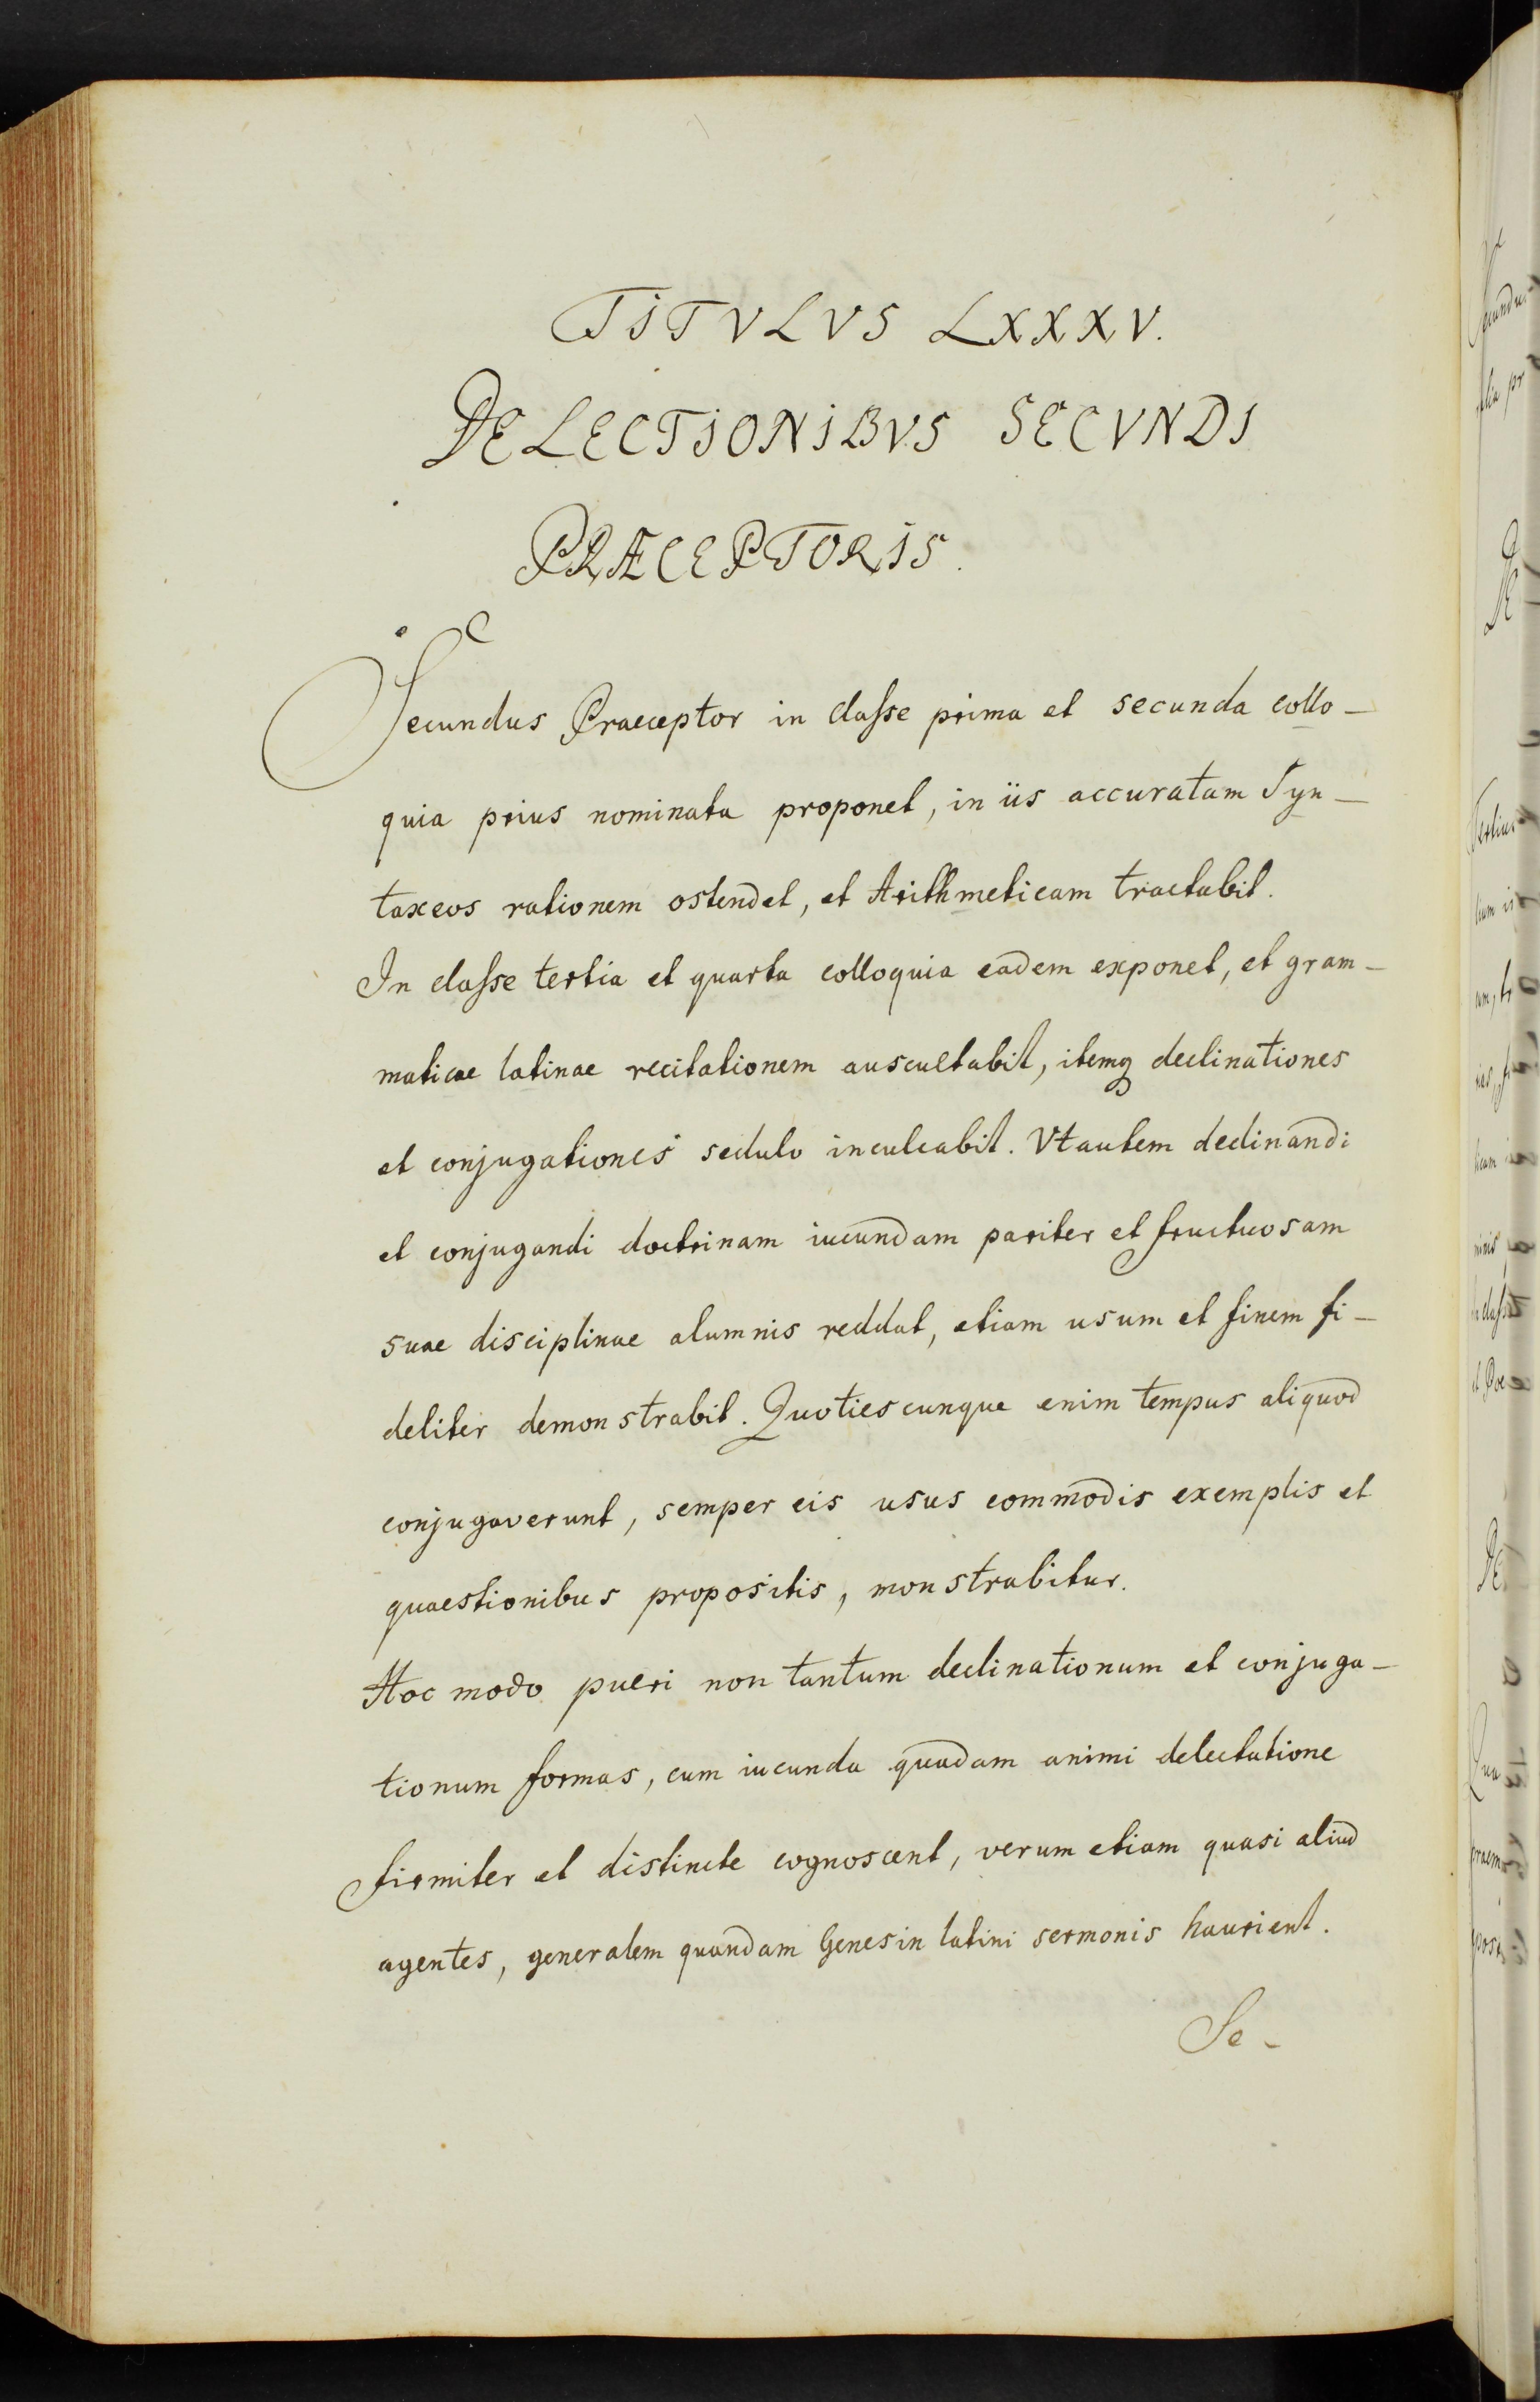 TITVLVS LXXXV.
DE LECTIONIBVS SECVNDI
PRÆCEPTORIS.
Secundus Praeceptor in claſse prima et secunda collo-
quia prius nominata proponet, in iis accuratam Syn-
taxeos rationem ostendet, et Arithmeticam tractabit.
In claſse tertia et quarta colloquia eadem exponet, et gram-
maticae latinae recitationem auscultabit, itemq declinationes
et conjugationes sedulo inculcabit. Vt autem declinandi
et conjugandi doctrinam iucundam pariter et fructuosam
suae disciplinae alumnis reddat, etiam usum et finem fi-
deliter demonstrabit. Quotiescunque enim tempus aliquod
conjugaverunt, semper eis usus commodis exemplis et
quaestionibus propositis, monstrabitur.
Hoc modo pueri non tantum declinationum et conjuga-
tionum formas, cum iucunda quadam animi delectatione
firmiter et distincte cognoscent, verum etiam quasi aliud
agentes, generalem quandam Genesin latini sermonis haurient.
Se-